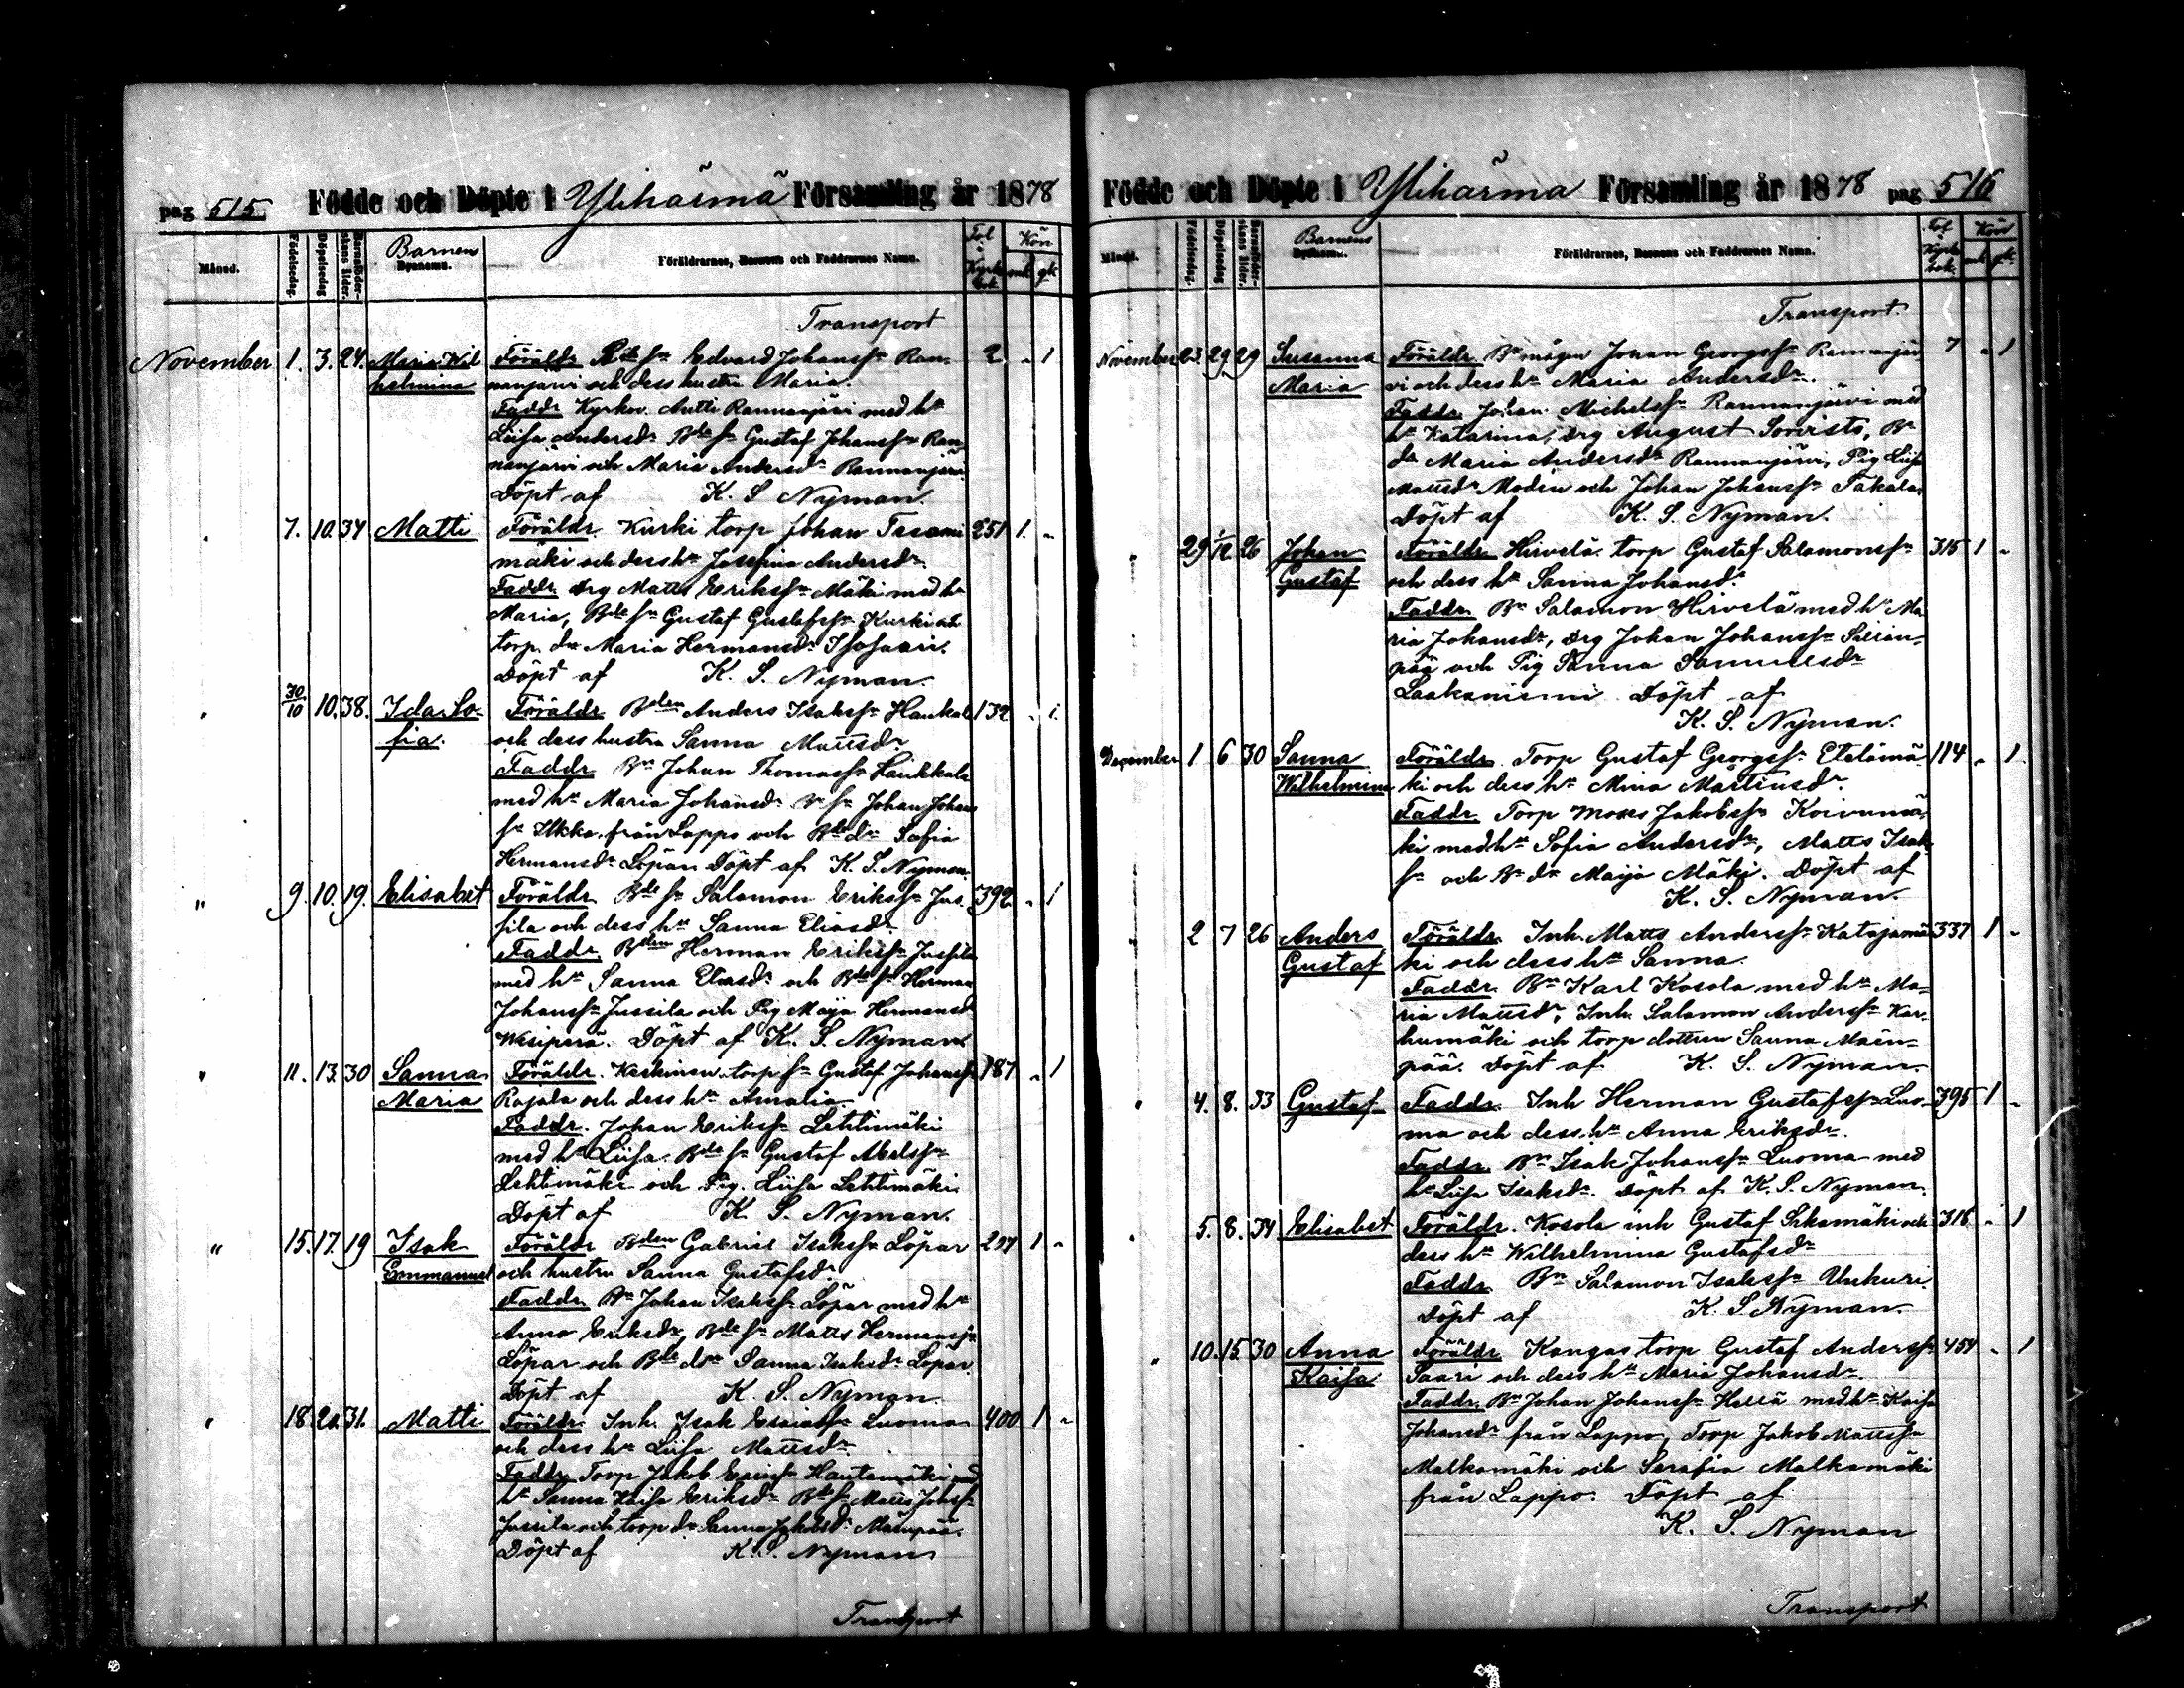 pag 515 Födde och Döpte i Ylihärmä Församling år 1878
Månad. Födelsedag. Döpelsedag Barnaföderskans ålder. Barnens Föräldrarnes, Barnens och Faddrarnes Namn. Fol i Kyrkobok. Kön mk qk.
Transport
November 1. 3. 24. Maria Wil Föräldr. Edvard Johanss:n Ran- 2 " 1
helmina nanjärvi och dess hustru Maria.
Faddr Kyrkov. Antti Rannanjärvi med h:u
Liisa Andersd:r Bde s:n Gustaf Johanss:n Ran
nanjärvi och Maria Andersd:r Rannanjärvi
Döpt af K. S Nyman.
7. 10. 34 Matti Föräldr. Kurki torp Johan 251 1. "
mäki och dess h:u Josefina Andersd:r
Faddr. drg Matts Erikss:n Mäki med h:u
Maria, Bde s:n Gustaf Gustafss:n Kurki och
torp. d:r Maria Hermansd:r Isosaari.
Döpt af K. S. Nyman.
30/10 10. 38. Ida So- Föräldr Bden Anders Isakss:n Haukkala 132 " 1.
fia. och dess hustru Sanna Mattsd:r
Faddr. B:n Johan Thomass:n Haukkala
med h:u Maria Johansd:r B:n s:n Johan Johans
s:n Ilkka från Lappo och Bde d:r Sofia
Hermansd:r Löpar Döpt af K. S. Nyman.
" 9. 10. 19. Elisabet Föräldr. Bde s:n Salomon Erikss:n Jus 392. " 1
sila och dess h:u Sanna Eliasd:r
Faddr. Bden Herman Erikss:n Jussila
med h:u Sanna Eliasd:r och Bde s:n Herman
Johanss:n Jussila och Pig Maija Hermansd
Wesiperä. Döpt af K. S. Nyman.
" 11. 13. 30 Sanna Föräldr. Keskinen torp s:n Gustaf Johanss:n 187 " 1
Maria Rajala och dess h:u Amalia
Faddr. Johan Erikss:n Lehtimäki
med h:u Liisa. Bde s:n Gustaf Abelss:n
Lehtimäki och Pig. Liisa Lehtimäki
Döpt af K. S. Nyman.
" 15. 17. 19 Isak Föräldr Bden Gabriel Isakss:n Löpar 207 1 "
Emmanuel och hustru Sanna Gustafsd:r
Faddr. B:n Johan Isakss:n Löpar med h:u
Anna Eriksd:r, Bde s:n Matts Hermanss:n
Löpar och Bde d:r Sanna Isaksd:r Löpar
Döpt af K. S. Nyman
" 18. 20. 31. Matti Föräldr. Inh. Isak Esaiass:n Luoma 400 1 "
och dess h:u Liisa Mattsd:r
Faddr. Torp Jakob Hautamäki med
h:u Sanna Kaisa Eriksd:r Bde s:n Matts Johss:n
Jussila och torp d:r Sanna Jakobsd:r Mäenpää.
Döpt af K. S. Nyman
Transport
Födde och Döpte i Ylihärmä Församling år 1878 pag 516
Månad. Födelsedag. Döpelsedag Barnaföderskans ålder. Barnens Föräldrarnes, Barnens och Faddrarnes Namn. Fol i Kyrkobok. Kön mk qk.
Transport.
November 23. 29 29 Susanna Föräldr. B:n mågen Johan Georgss:n Rannanjär 7 " 1
Maria vi och dess h:u Maria Andersd:r.
Faddr. Johan Michelss:n Rannanjärvi med
h:u Katarina, drg August Sorvisto, B:n
d:r Maria Andersd:r Rannanjärvi, Pig Liisa
Mattsd:r Modin och Johan Johanss:n Takala.
Döpt af K. S. Nyman.
" 29 1/12 26 Johan Föräldr. Hirvelä torp Gustaf Salamonss:n 315 1 "
Gustaf och dess h:u Sanna Johansd:r
Faddr. B:n Salamon Hirvelä med h:u Ma
ria Johansd:r, drg Johan Johanss:n Sillan-
pää och Pig Sanna Samuelsd:r
Laakaniemi Döpt af
K. S. Nyman.
December 1 6 30 Sanna Föräldr. Torp Gustaf Georgss:n Etelämä 114 " 1
Wilhelmina ki och dess h:u Mina Martinsd:r.
Faddr. Torp Moses Jakobss:n Koivumä
ki med h:u Sofia Andersd:r, Matts Isak
s:n och B:n d:r Maija Mäki. Döpt af
K. S. Nyman.
" 2 7 26 Anders Föräldr. Inh. Matts Anderss:n Katajamä 337 1 "
Gustaf ki och dess h:u Sanna.
Faddr. B:n Karl Kosola med h:u Ma-
ria Mattsd:r, Inh. Salamon Anderss:n Kar-
humäki och torp dottren Sanna Mäen-
pää. Döpt af K. S. Nyman.
" 4. 8. 33 Gustaf Faddr. Inh Herman Gustafss:n Luo- 395 1 "
ma och dess h:u Anna Eriksd:r.
Faddr. B:n Isak Johanss:n Luoma med
h:u Liisa Isaksd:r. Döpt af K. S. Nyman.
" 5. 8. 34 Elisabet Föräldr. Kosola inh Gustaf och 316 " 1
dess h:u Wilhelmina Gustafsd:r
Faddr. B:n Salamon Isakss:n Unkuri.
Döpt af K. S Nyman.
" 10. 15. 30 Anna Föräldr. Kangas torp Gustaf Anderss:n 454 " 1
Kaisa Saari och dess h:u Maria Johansd:r.
Faddr. B:n Johan Johanss:n Hellä med h:u Kaisa
Johansd:r från Lappo, Torp Jakob Mattss:n
Malkamäki och Serafia Malkamäki
från Lappo. Döpt af
K. S. Nyman
Transport